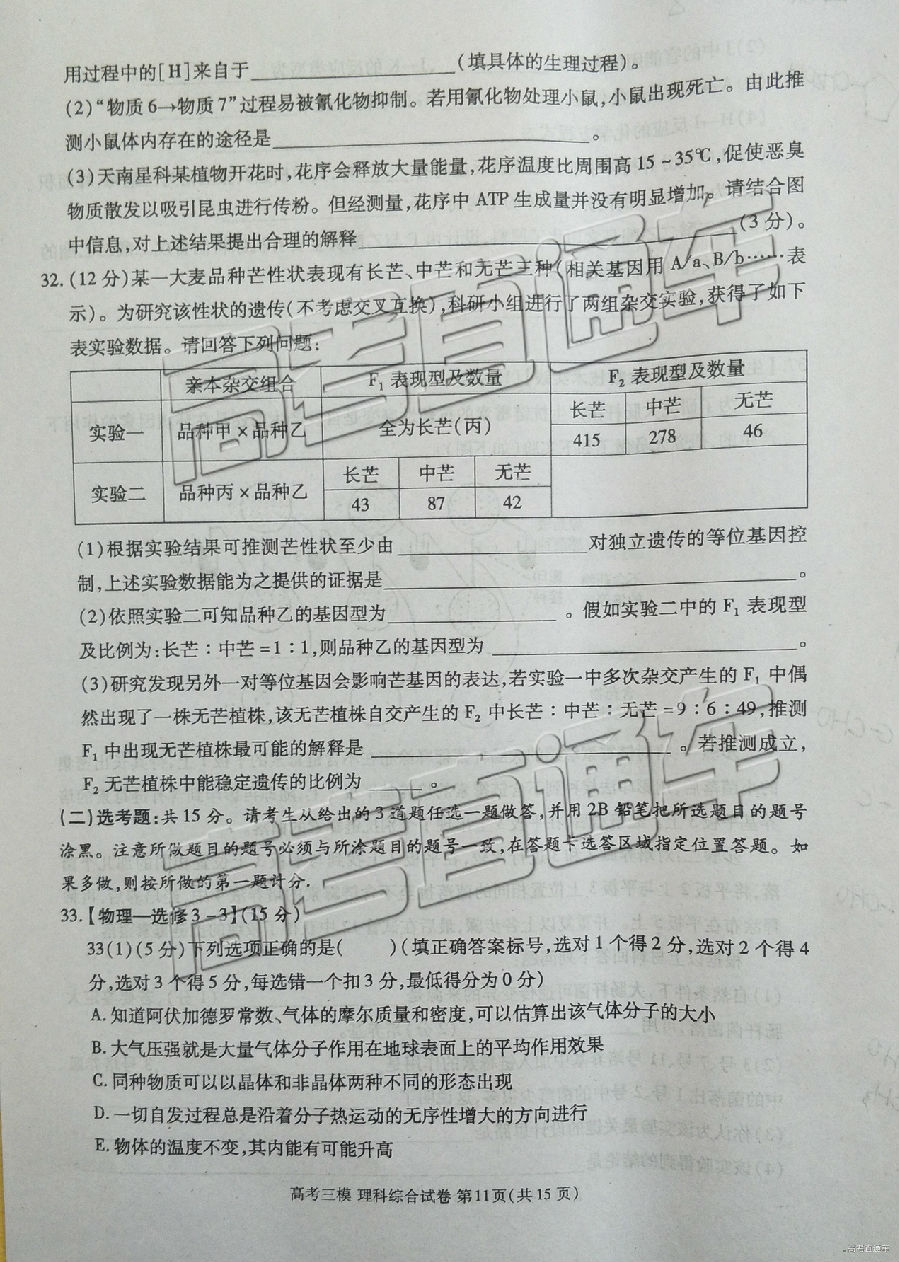 用过程中的[H]来自于____________(填具体的生理过程)。
(2)“物质6→物质7”过程易被氰化物抑制。若用氰化物处理小鼠,小鼠出现死亡。由此推
测小鼠体内存在的途径是____________。
(3)天南星科某植物开花时,花序会释放大量能量,花序温度比周围高15~35℃,促使恶臭
物质散发以吸引昆虫进行传粉。但经测量,花序中ATP生成量并没有明显增加。请结合图
中信息,对上述结果提出合理的解释____________(3分)。
32.(12分)某一大麦品种芒性状表现有长芒、中芒和无芒三种(相关基因用A/a、B/b……表
示)。为研究该性状的遗传(不考虑交叉互换),科研小组进行了两组杂交实验,获得了如下
表实验数据。请回答下列问题:
亲本杂交组合 F1表现型及数量 F2表现型及数量
实验一 品种甲×品种乙 全为长芒(丙) 长芒 中芒 无芒
415 278 46
实验二 品种丙×品种乙 长芒 中芒 无芒
43 87 42
(1)根据实验结果可推测芒性状至少由____________对独立遗传的等位基因控
制,上述实验数据能为之提供的证据是____________。
(2)依照实验二可知品种乙的基因型为____________。假如实验二中的F1表现型
及比例为:长芒:中芒=1:1,则品种乙的基因型为____________。
(3)研究发现另外一对等位基因会影响芒基因的表达,若实验一中多次杂交产生的F1中偶
然出现了一株无芒植株,该无芒植株自交产生的F2中长芒:中芒:无芒=9:6:49,推测
F1中出现无芒植株最可能的解释是____________。若推测成立,
F2无芒植株中能稳定遗传的比例为______。
(二)选考题:共15分。请考生从给出的3道题任选一题做答,并用2B铅笔把所选题目的题号
涂黑。注意所做题目的题号必须与所涂题目的题号一致,在答题卡选答区域指定位置答题。如
果多做,则按所做的第一题计分.
33.【物理—选修3-3】(15分)
33(1)(5分)下列选项正确的是( )(填正确答案标号,选对1个得2分,选对2个得4
分,选对3个得5分,每选错一个扣3分,最低得分为0分)
A.知道阿伏加德罗常数、气体的摩尔质量和密度,可以估算出该气体分子的大小
B.大气压强就是大量气体分子作用在地球表面上的平均作用效果
C.同种物质可以以晶体和非晶体两种不同的形态出现
D.一切自发过程总是沿着分子热运动的无序性增大的方向进行
E.物体的温度不变,其内能有可能升高
高考三模 理科综合试卷 第11页(共15页)
高考直通车
高考直通车
高考直通车